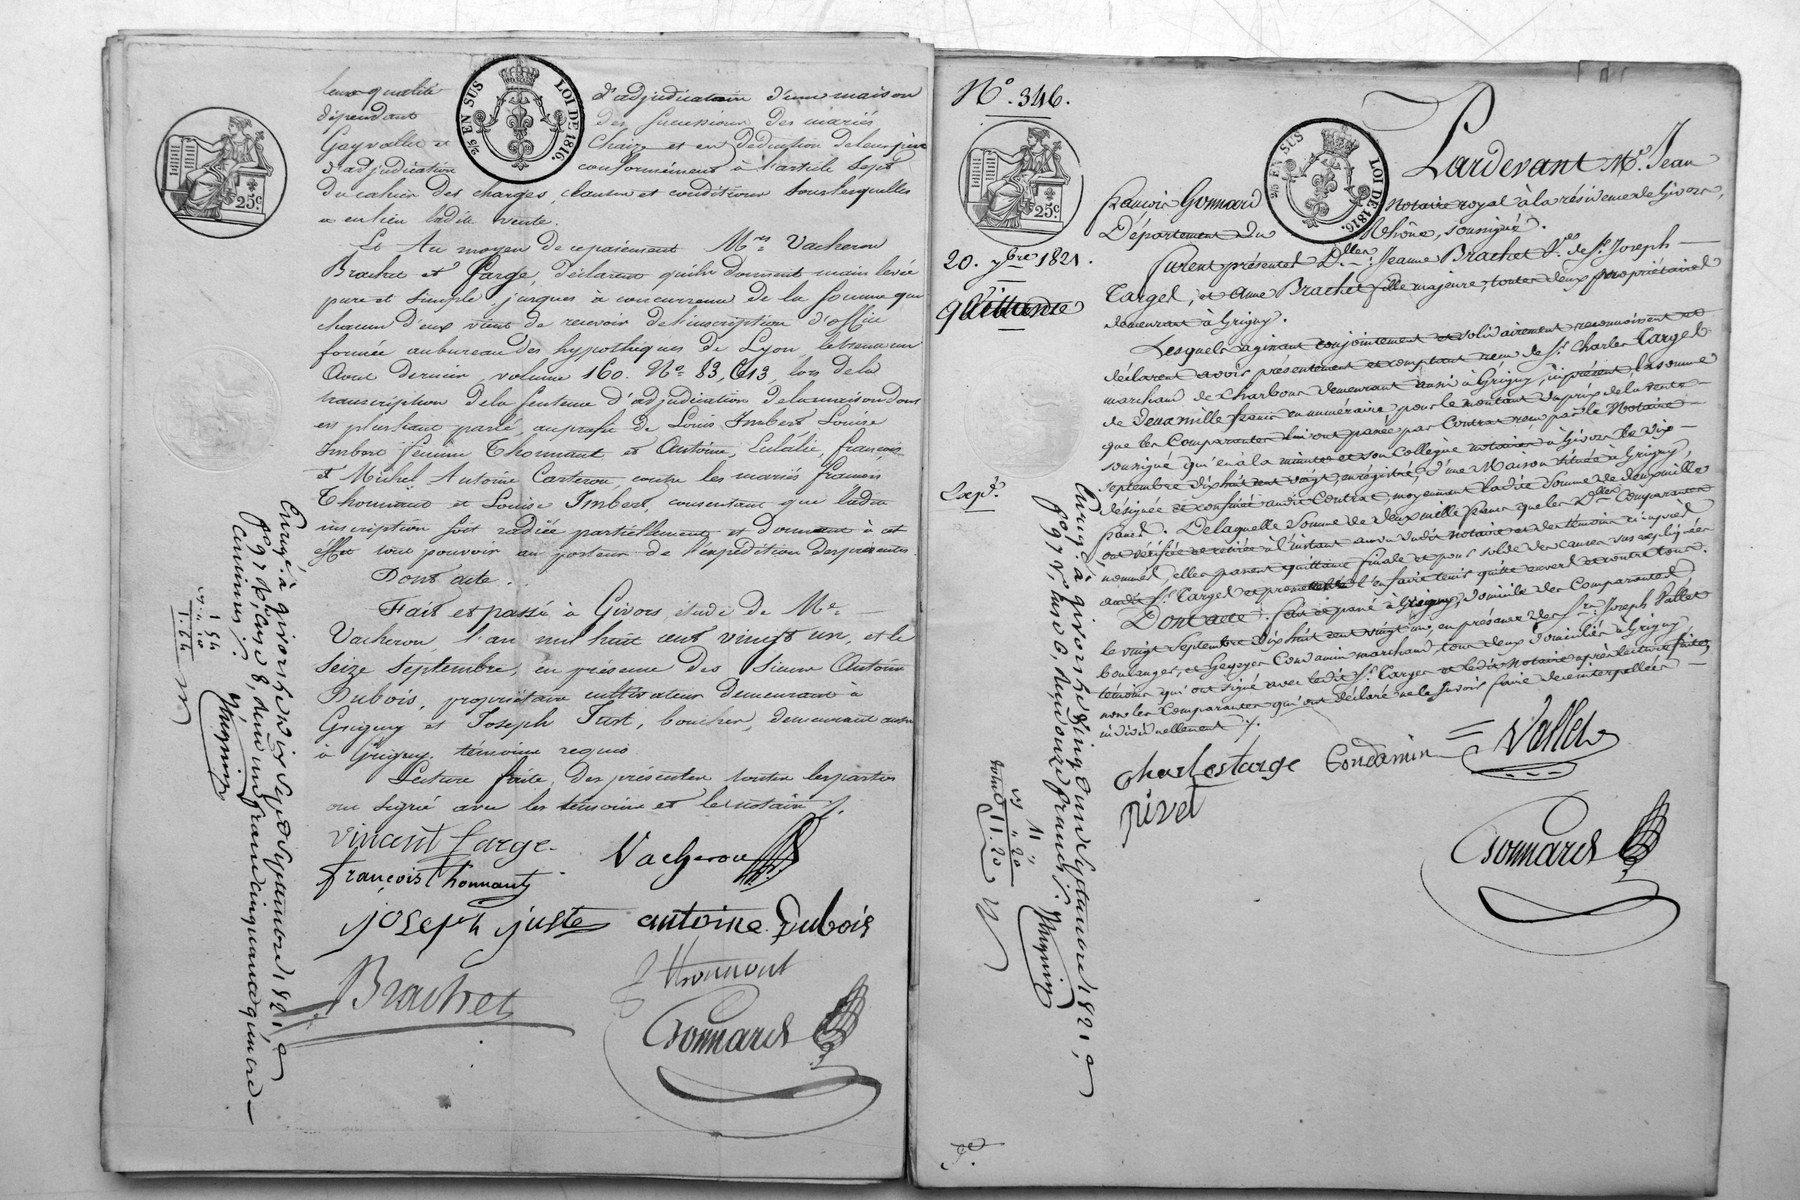 leur qualité d'adjudicataire d'une maison
dépendant des successions des mariés
Gayvallet et Chaize et en déduction de leur prix
d'adjudication conformément à l'article sept
du cahier des charges, clauses et conditions sous lesquelles
a eu lieu ladite vente.
25 EN SUS LOI DE 1816.
25c
Et Au moyen de ce paiement Mrs Vacheron
Brachet et Farge, déclarent qu'ils donnent main levée
pure et simple, jusques à concurrence de la somme que
chacun d'eux vient de recevoir de l'inscription d'office
formée au bureau des hypothèques de Lyon le trente un
Aout dernier, volume 160. No 83, 613, lors de la
transcription de la sentence d'adjudication de la maison dont
est plus haut parlé, au profit de Louis Imbert, Louise
Imbert femme Thonnant et Antoine, Eulalie, françois
et Michel Antoine Carteron, contre les mariés francois
Thonnant et Louise Imbert, consentant que ladite
inscription soit radiée partiellement et donnent à cet
effet tout pouvoir au porteur de l'expédition des présentes.
Dont acte.
Fait et passé à Givors, étude de Me
Vacheron, l'an mil huit cent vingt un, et le
seize Septembre, en présence des sieurs Antoine
Dubois, propriétaire cultivateur demeurant à
Grigny et Joseph Just, boucher, demeurant aussi
à Grigny, témoins requis.
Lecture faite, des présentes toutes les parties
ont signé avec les témoins et le notaire ./.
vincent farge Vacheron
françois thonnant
joseph juste antoine Dubois
Brachet Thonnant
Gonnard
Enrigé à givors le vingt Septembre 1821,
fo 97 Ro, case 8, reçu un franc cinquante quatre
centimes ./.
1 54
10
1.64
No. 346.
25c
25 EN SUS LOI DE 1816.
20. 7bre 1821.
Quittance
Expd.
Pardevant Me Jean
francois Gonnard notaire royal à la résidence de Givors,
Département du Rhône, soussigné.
furent présentes Dlles Jeanne Brachet Ve de Sr Joseph
Targel, et Anne Brachet fille majeure, toutes deux propriétaires
demeurant à Grigny.
Lesquels agissant conjointement et solidairement reconnoissent et
déclarent avoir présentement et comptant reçu de Sr Charles Targel
marchand de Charbons demeurant aussi à Grigny, ici présent, la somme
de deux mille francs en numéraire, pour le montant du prix de la vente
que les Comparantes lui ont passée par Contrat reçu par le Notaire
soussigné qui en a la minute et son Collègue notaires à Givors le dix
septembre dix huit cent vingt, enrégistré, d'une Maison située à Grigny,
désignée et confinée audit Contrat, moyennant ladite somme de deux mille
francs. De laquelle somme de deux mille francs que les Dlles Comparantes
ont vérifiée et retirée à l'instant au vu dudit notaire et des témoins ci après
nommés, elles passent quittance finale et pour solde des causes sus expliquées
audit Sr Targel et promettent l'en faire tenir quitte envers et contre tous.
Dont acte: fait et passé à Grigny, domicile des Comparantes
le vingt Septembre dix huit cent vingt un, en présence de Srs Joseph Vallet
boulanger, et Condamin marchand, tous deux domiciliés à Grigny
témoins qui ont signé avec ledit Sr Targe et ledit Notaire après lecture faite,
non les Comparantes qui ont déclaré ne le savoir faire de ce interpellées
individuellement ./.
charles targe Condamin Vallet
rivet
Gonnard
Enrigé à givors le vingt un Septembre 1821,
fo 97 Vo, case 6, reçu onze francs ./.
11 "
" 20
total 11.20